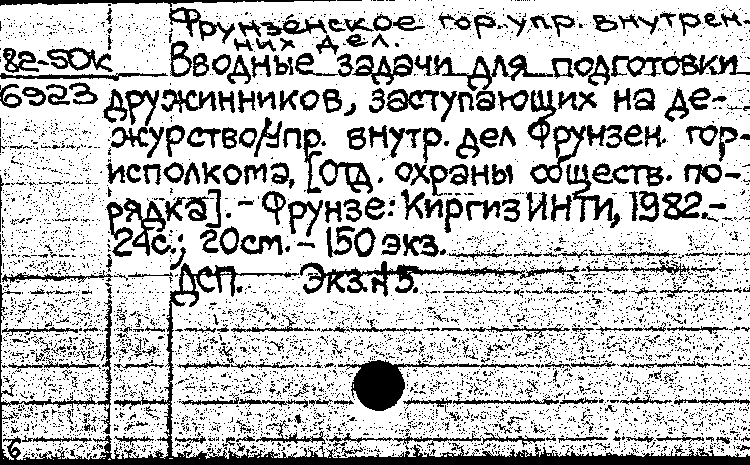 Фрунзенское гор. упр. внутрен-
них дел.
82-50К Вводные задачи для подготовки
6923 дружинников, заступающих на де-
журство/Упр. внутр. дел Фрунзен. гор-
исполкома, [Отд. охраны обществ. по-
рядка]. – Фрунзе: КиргизИНТИ, 1982.–
24с.; 20см. – 150 экз.
ДСП. Экз.№5.
6